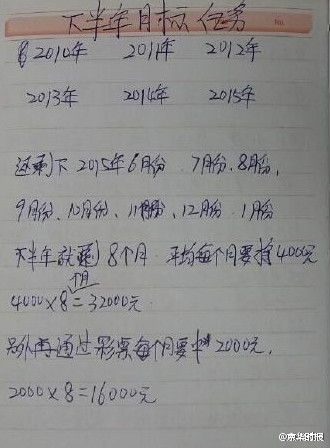 下半年目标任务
2010年 2011年 2012年
2013年 2014年 2015年
还剩下 2015年6月份、7月份、8月份、
9月份、10月份、11月份、12月份、1月份
下半年就剩8个月 平均每个月要揩4000元
4000×8=32000元
另外再通过彩票每个月要中2000元,
2000×8=16000元
@京华时报